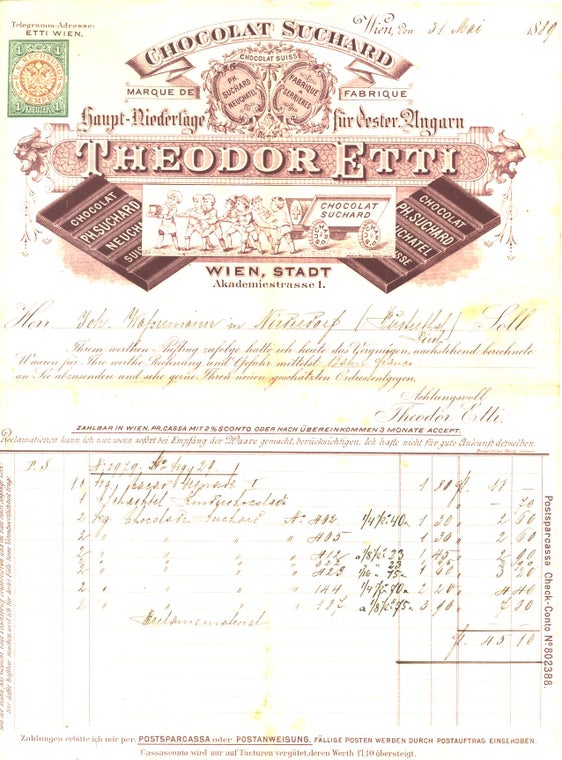 Telegramm-Adresse:
ETTI WIEN.
Wien, den 31 Mai 1889
1 1
KREUZER
CHOCOLAT SUCHARD
CHOCOLAT SUISSE
MARQUE DE FABRIQUE
PH. SUCHARD NEUCHATEL
FABRIQUE A SERRIERES
Haupt-Niederlage für Oester.-Ungarn
THEODOR ETTI
CHOCOLAT
PH. SUCHARD
NEUCHATEL
SUISSE
CHOCOLAT
SUCHARD
CHOCOLAT
PH. SUCHARD
NEUCHATEL
SUISSE
WIEN, STADT
Akademiestrasse 1.
Herr Joh. in Niederdorf Soll
Ihrem werthen Auftrag zufolge hatte ich heute das Vergnügen, nachstehend berechnete
Waaren für Ihre werthe Rechnung und Gefahr mittelst
an Sie abzusenden und sehe gerne Ihren neuen geschätzten Ordres entgegen.
Achtungsvoll
Theodor Etti.
ZAHLBAR IN WIEN, PR. CASSA MIT 2% SCONTO ODER NACH ÜBEREINKOMMEN 3 MONATE ACCEPT.
Reclamationen kann ich nur, wenn sofort bei Empfang der Waare gemacht, berücksichtigen. Ich hafte nicht für gute Ankunft derselben.
Kg. Cacao I 1 80 fl.
1 Schachtel
2 Kg. Chocolade Suchard No 402 1/4 40 1 30 2 60
2 " " " 405 1 30 2 60
412 a 1/8 23 1 45 2 90
423 1/16 75 3 20
2 " " " 144 1/4 70 2 20 4 40
2 " " " 197 a 1/8 75 3 90 7 80
Reclamematerial
fl. 45 10
Postsparcassa Check-Conto No 802388.
Zahlungen erbitte ich mir per, POSTSPARCASSA oder POSTANWEISUNG. FÄLLIGE POSTEN WERDEN DURCH POSTAUFTRAG EINGEHOBEN.
Cassasconto wird nur auf Facturen vergütet, deren Werth fl.10 übersteigt.